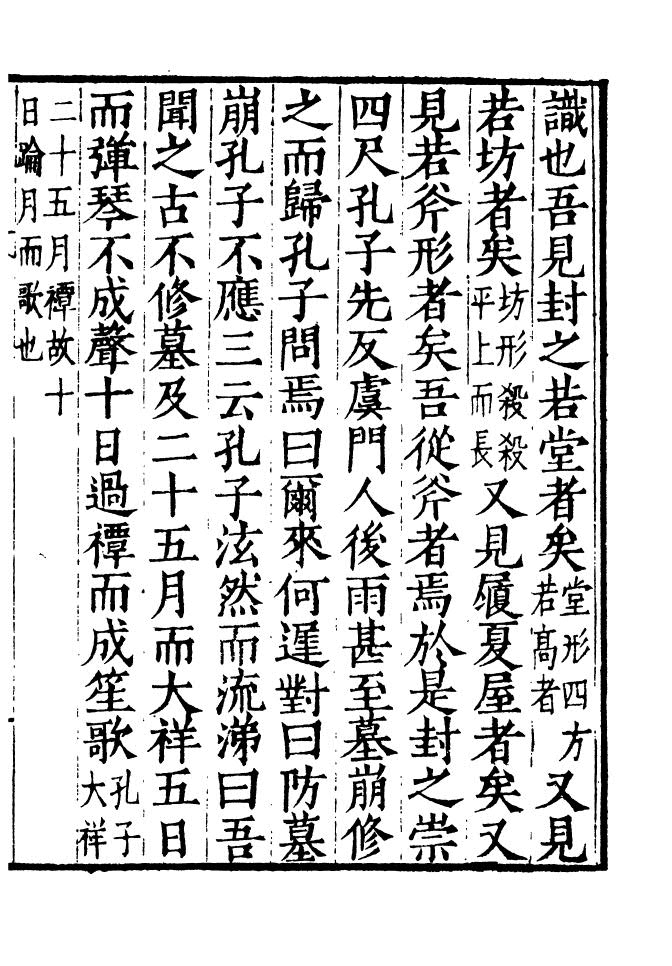 識也吾見封之若堂者矣堂形四方若髙者又見
若坊者矣坊形殺殺平上而長又見履夏屋者矣又
見若斧形者矣吾從斧者焉於是封之崇
四尺孔子先反虞門人後雨甚至墓崩修
之而歸孔子問焉曰爾來何遲對曰防墓
崩孔子不應三云孔子泫然而流涕曰吾
聞之古不修墓及二十五月而大祥五日
而彈琴不成聲十日過禫而成笙歌孔子大祥
二十五月禫故十日踰月而歌也